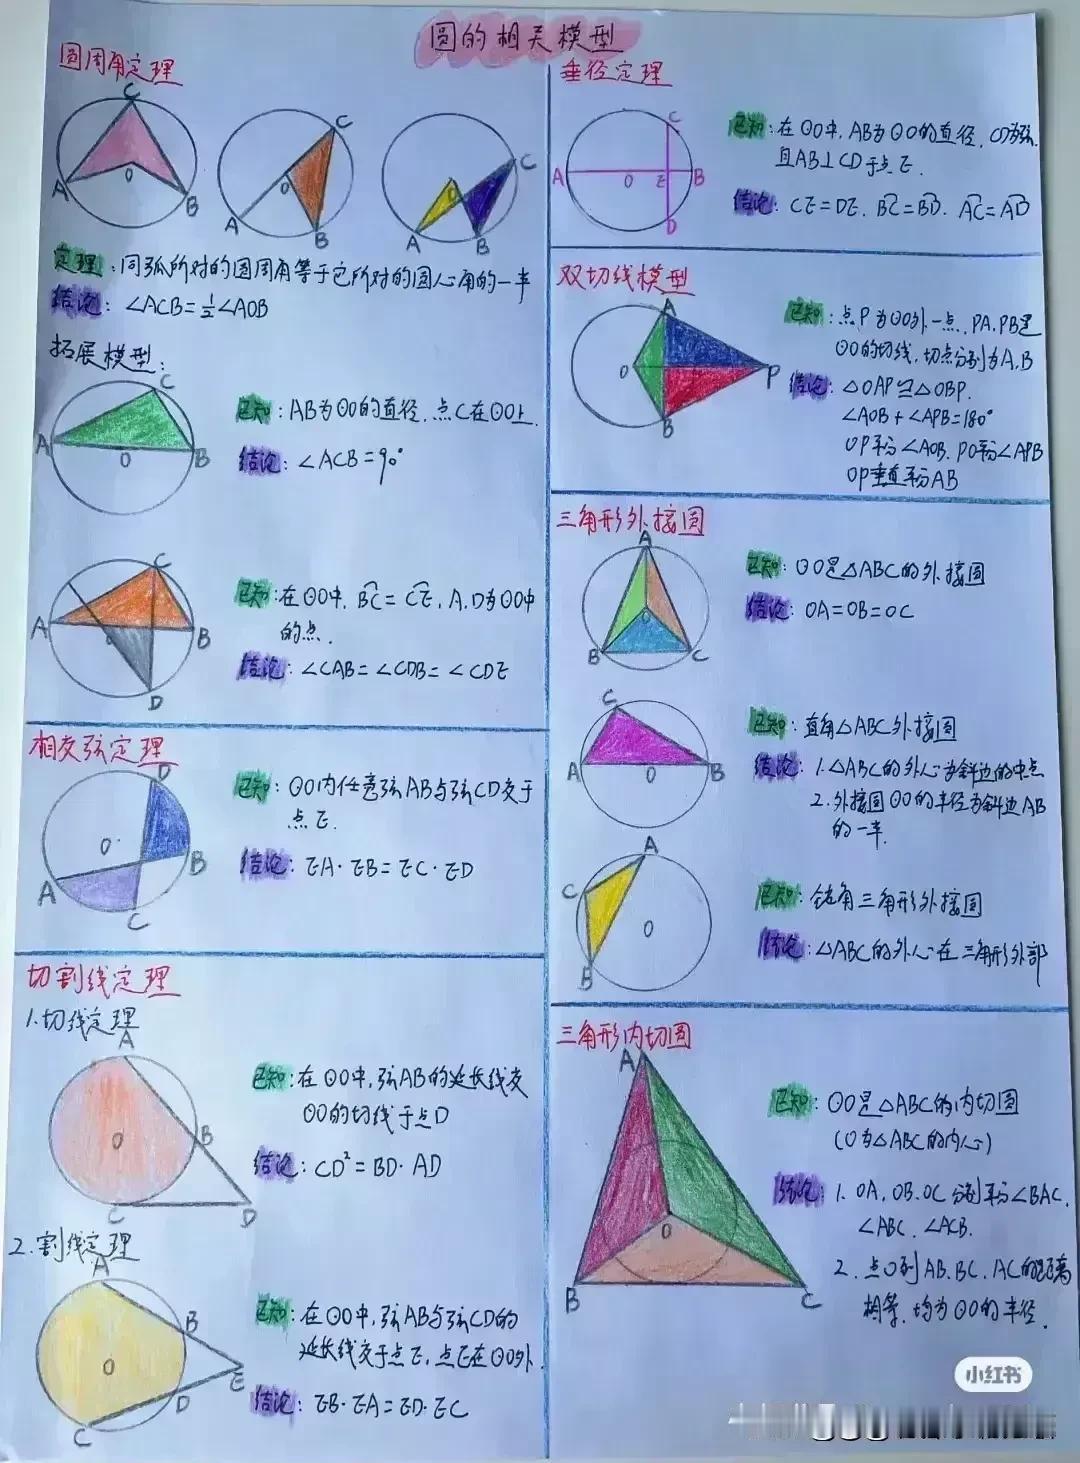 圆的相关模型
圆周角定理
C
O
A
B
C
O
A
B
C
O
A
B
定理：同弧所对的圆周角等于它所对的圆心角的一半
结论：∠ACB=½∠AOB
拓展模型：
C
A
O
B
已知：AB为⊙O的直径，点C在⊙O上.
结论：∠ACB=90°
C
A
B
D
已知：在⊙O中，B͡C=C͡E，A，D为⊙O中
的点.
结论：∠CAB=∠CDB=∠CDE
相交弦定理
D
O
A
B
C
已知：⊙O内任意弦AB与弦CD交于
点E.
结论：EA·EB=EC·ED
切割线定理
1.切线定理
A
O
B
C
D
已知：在⊙O中，弦AB的延长线交
⊙O的切线于点D
结论：CD²=BD·AD
2.割线定理
A
B
O
E
D
C
已知：在⊙O中，弦AB与弦CD的
延长线交于点E，点E在⊙O外.
结论：EB·EA=ED·EC
垂径定理
C
A
O
E
B
D
已知：在⊙O中，AB为⊙O的直径，CD为弦，
且AB⊥CD于点E.
结论：CE=DE，B͡C=B͡D，A͡C=A͡D
双切线模型
A
O
P
B
已知：点P为⊙O外一点，PA，PB是
⊙O的切线，切点分别为A，B
结论：△OAP≌△OBP.
∠AOB+∠APB=180°
OP平分∠AOB，PO平分∠APB
OP垂直平分AB
三角形外接圆
A
O
B
C
已知：⊙O是△ABC的外接圆
结论：OA=OB=OC
C
A
O
B
已知：直角△ABC外接圆
结论：1.△ABC的外心为斜边的中点
2.外接圆⊙O的半径为斜边AB
的一半.
A
C
O
B
已知：钝角三角形外接圆
结论：△ABC的外心在三角形外部
三角形内切圆
A
O
B
C
已知：⊙O是△ABC的内切圆
(O为△ABC的内心)
结论：1.OA，OB，OC分别平分∠BAC，
∠ABC，∠ACB.
2.点O到AB，BC，AC的距离
相等，均为⊙O的半径.
小红书